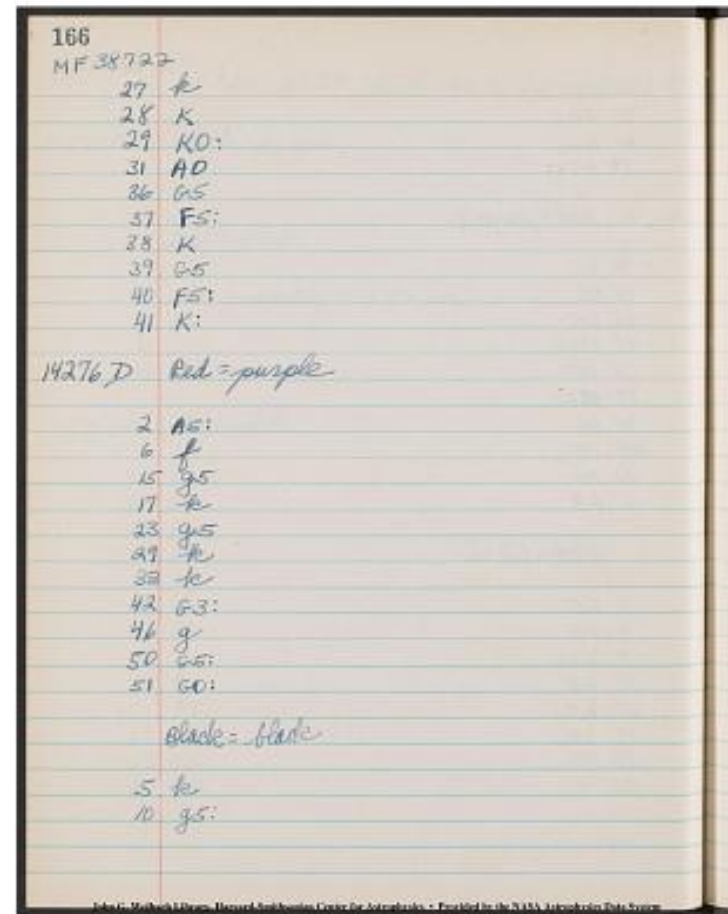 166
MF 38722
27 k
28 K
29 K0:
31 A0
36 G5
37 F5:
38 K
39 G5
40 F5:
41 K:
14276 D Red = purple
2 A5:
6 f
15 g5
17 k
23 g5
29 k
33 k
42 G3:
46 g
50 G5:
51 G0:
Black = black
5 k
10 g5:
John G. Wolbach Library, Harvard-Smithsonian Center for Astrophysics • Provided by the NASA Astrophysics Data System